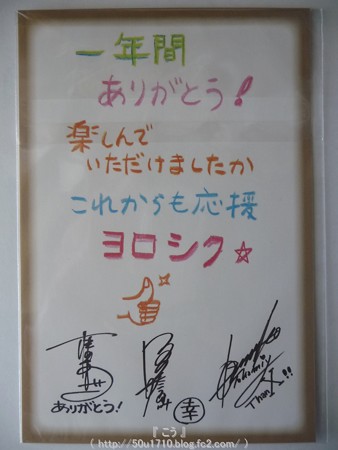 一年間
ありがとう!
楽しんで
いただけましたか
これからも応援
ヨロシク☆
ありがとう!
幸
Thanx!!
『 こう 』
( http://50u1710.blog.fc2.com/ )